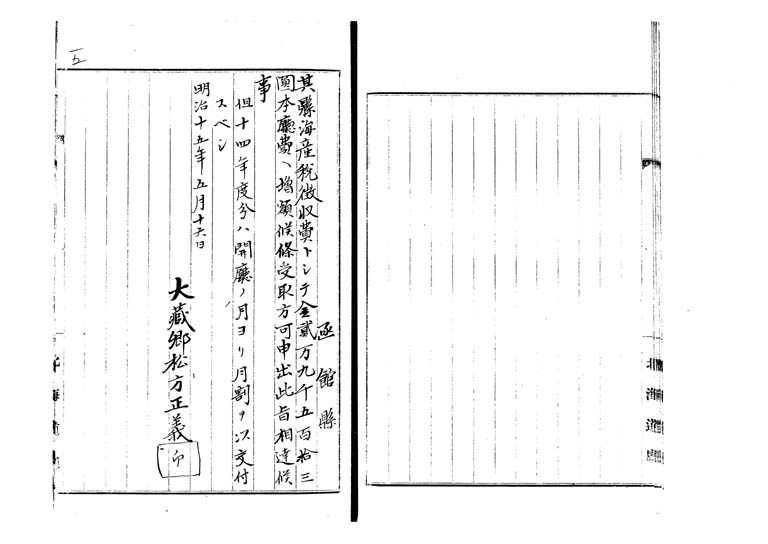 函館縣
其縣海産税徴収費トシテ金貳万九千五百拾三
圓本廳費ヘ増額候條受取方可申出此旨相達候
事
但十四年度分ハ開廳ノ月ヨリ月割ヲ以交付
スベシ
明治十五年五月十六日
大藏卿松方正義
印
五
北海道